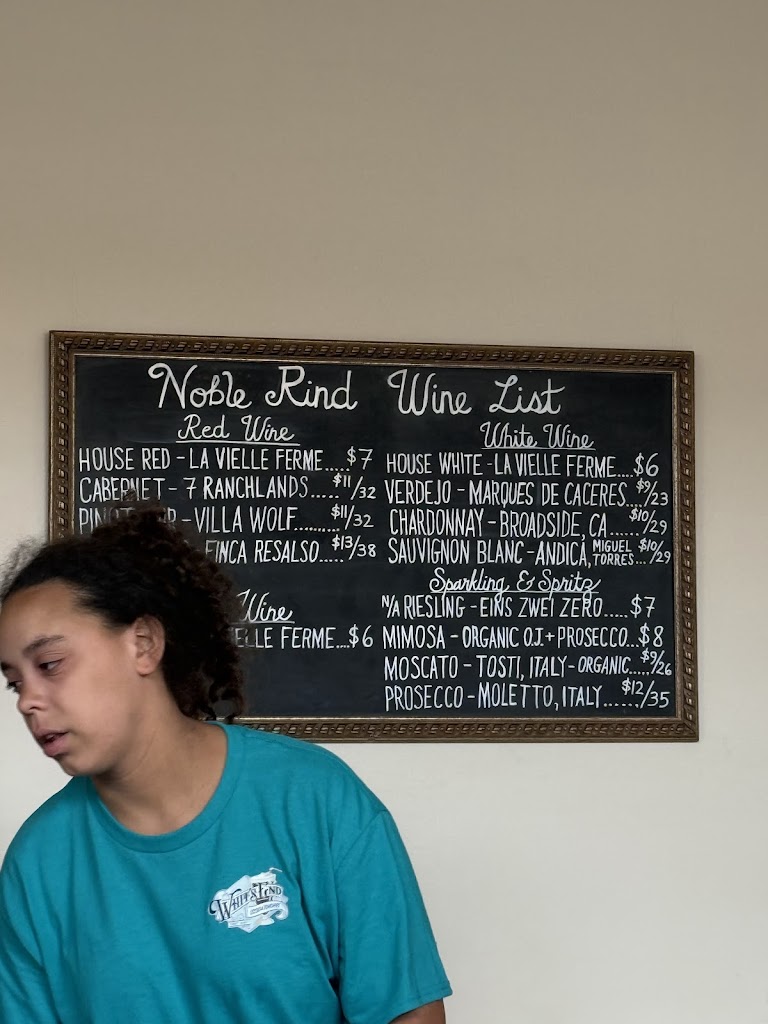 Noble Rind Wine List
Red Wine
HOUSE RED - LA VIELLE FERME....$7
CABERNET - 7 RANCHLANDS.....$11/32
VILLA WOLF.........$11/32
FINCA RESALSO.....$13/38
Wine
FERME....$6
White Wine
HOUSE WHITE - LA VIELLE FERME....$6
VERDEJO - MARQUES DE CACERES..$9/23
CHARDONNAY - BROADSIDE, CA....$10/29
SAUVIGNON BLANC - ANDICA, MIGUEL TORRES...$10/29
Sparkling & Spritz
N/A RIESLING - EINS ZWEI ZERO.....$7
MIMOSA - ORGANIC O.J. + PROSECCO...$8
MOSCATO - TOSTI, ITALY - ORGANIC.....$9/26
PROSECCO - MOLETTO, ITALY......$12/35
WHIT'S END